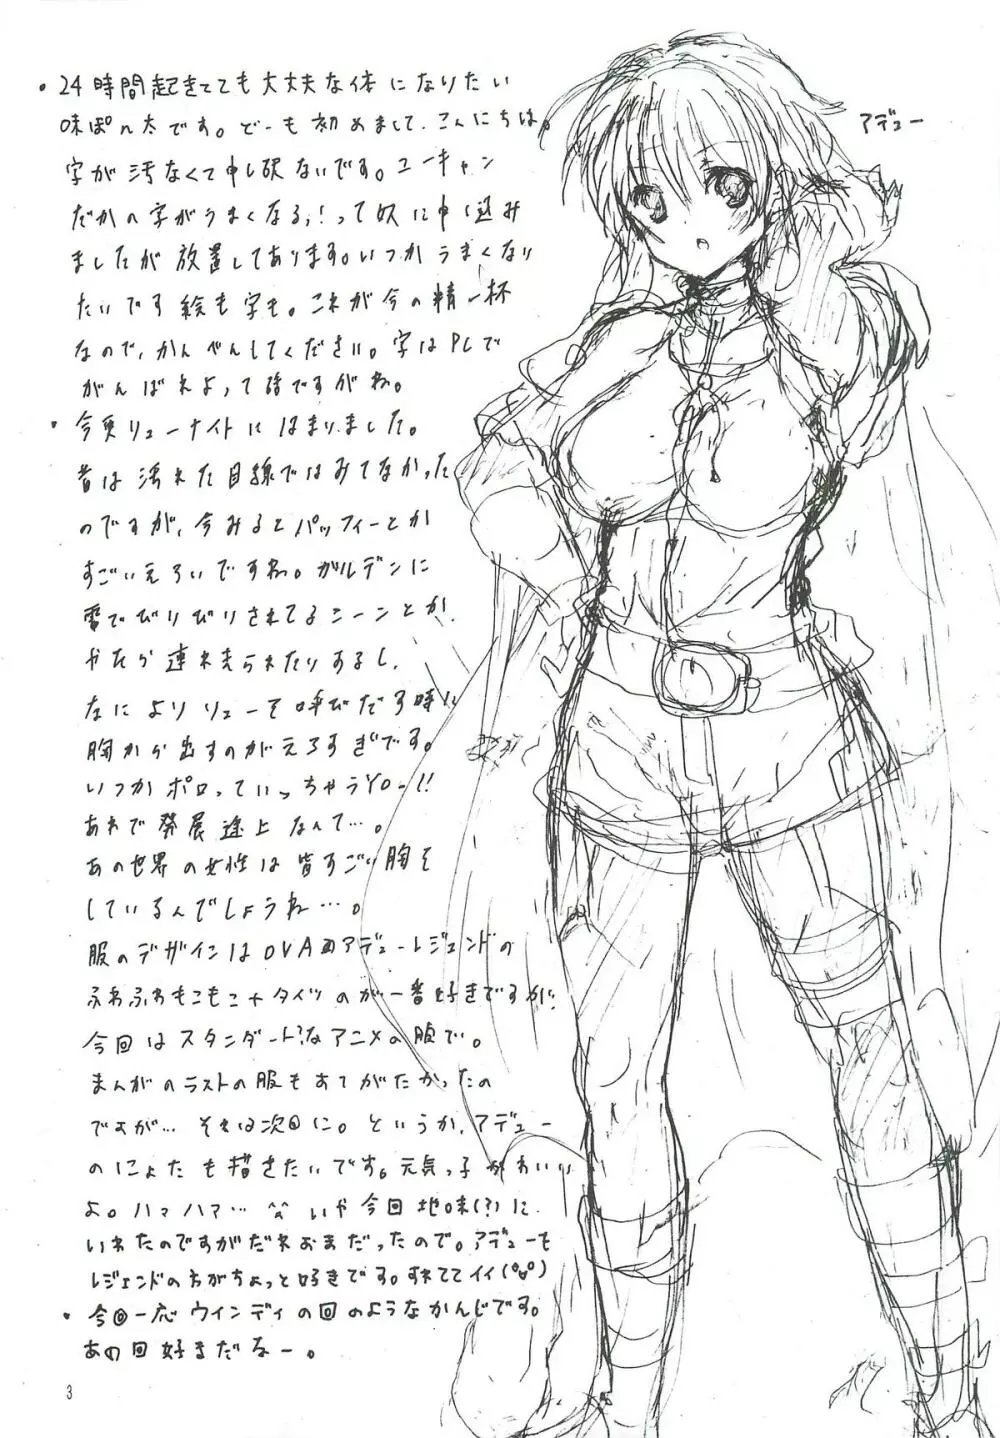 ・24時間起きてても大丈夫な体になりたい
味ぽん太です。どーも初めまして、こんにちは。
字が汚なくて申し訳ないです。ユーキャン
だかの字がうまくなる!って奴に申し込み
ましたが放置してあります。いつかうまくなり
たいです絵も字も。これが今の精一杯
なので、かんべんしてください。字はPCで
がんばれよって話ですがね。
・今更リューナイトにはまりました。
昔は汚れた目線ではみてなかった
のですが、今みるとパッフィーとか
すごいえろいですね。ガルデンに
雷でびりびりされてるシーンとか
やたら連れ去られたりするし、
なによりリューを呼びだす時に
胸から出すのがえろすぎです。
いつかポロっていっちゃうYO-!!
あれで発展途上なんて…。
あの世界の女性は皆すごい胸を
しているんでしょうね…。
服のデザインはOVAのアデューレジェンドの
ふわふわもこもこ+タイツのが一番好きですが
今回はスタンダード?なアニメの服で。
まんがのラストの服もすてがたかったの
ですが… それは次回に。というか、アデュー
のにょたも描きたいです。元気っ子かわいい
よ。ハァハァ… ^^ いや今回地味(?)に
いれたのですがだれおまだったので。アデューも
レジェンドの方がちょっと好きです。すれててイイ(°∀°)
・今回一応ウインディの回のようなかんじです。
あの回好きだなー。
アデュー
3